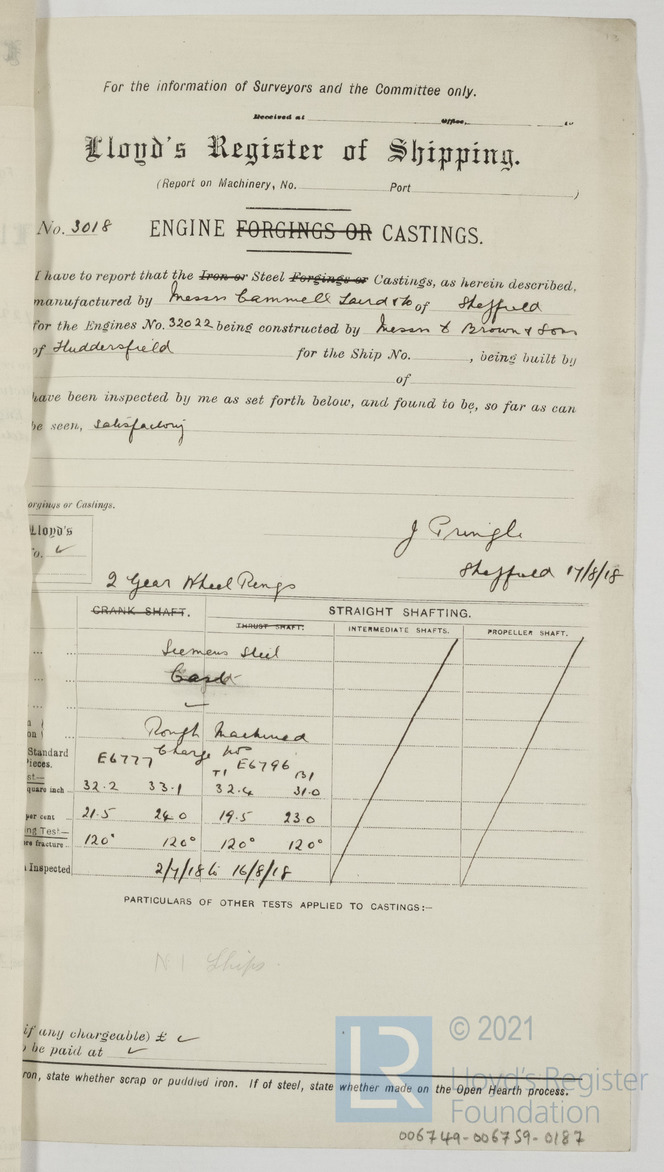 13
For the information of Surveyors and the Committee only.
Received at Office,
Lloyd's Register of Shipping.
(Report on Machinery, No. Port )
No. 3018 ENGINE FORGINGS OR CASTINGS.
I have to report that the Iron or Steel Forgings or Castings, as herein described,
manufactured by Messrs Cammell Laird & Co of Sheffield
for the Engines No. 32022 being constructed by Messrs D Brown & Sons
of Huddersfield for the Ship No. , being built by
of
have been inspected by me as set forth below, and found to be, so far as can
be seen, satisfactory
orgings or Castings.
Lloyd's
No.
J Pringle
Sheffield 17/8/18
2 Gear Wheel Rings
CRANK SHAFT. STRAIGHT SHAFTING.
THRUST SHAFT. INTERMEDIATE SHAFTS. PROPELLER SHAFT.
... Siemens Steel
... Cast
...
Rough Machined
Standard Charge Nos
ieces. E6777 E6796
st— T1 B1
quare inch 32.2 33.1 32.4 31.0
per cent 21.5 24.0 19.5 23.0
ng Test—
re fracture 120° 120° 120° 120°
Inspected 2/7/18 to 16/8/18
PARTICULARS OF OTHER TESTS APPLIED TO CASTINGS:—
Ships
if any chargeable) £
be paid at
ron, state whether scrap or puddled iron. If of steel, state whether made on the Open Hearth process.
LR
© 2021
Lloyd's Register
Foundation
006749-006759-0187